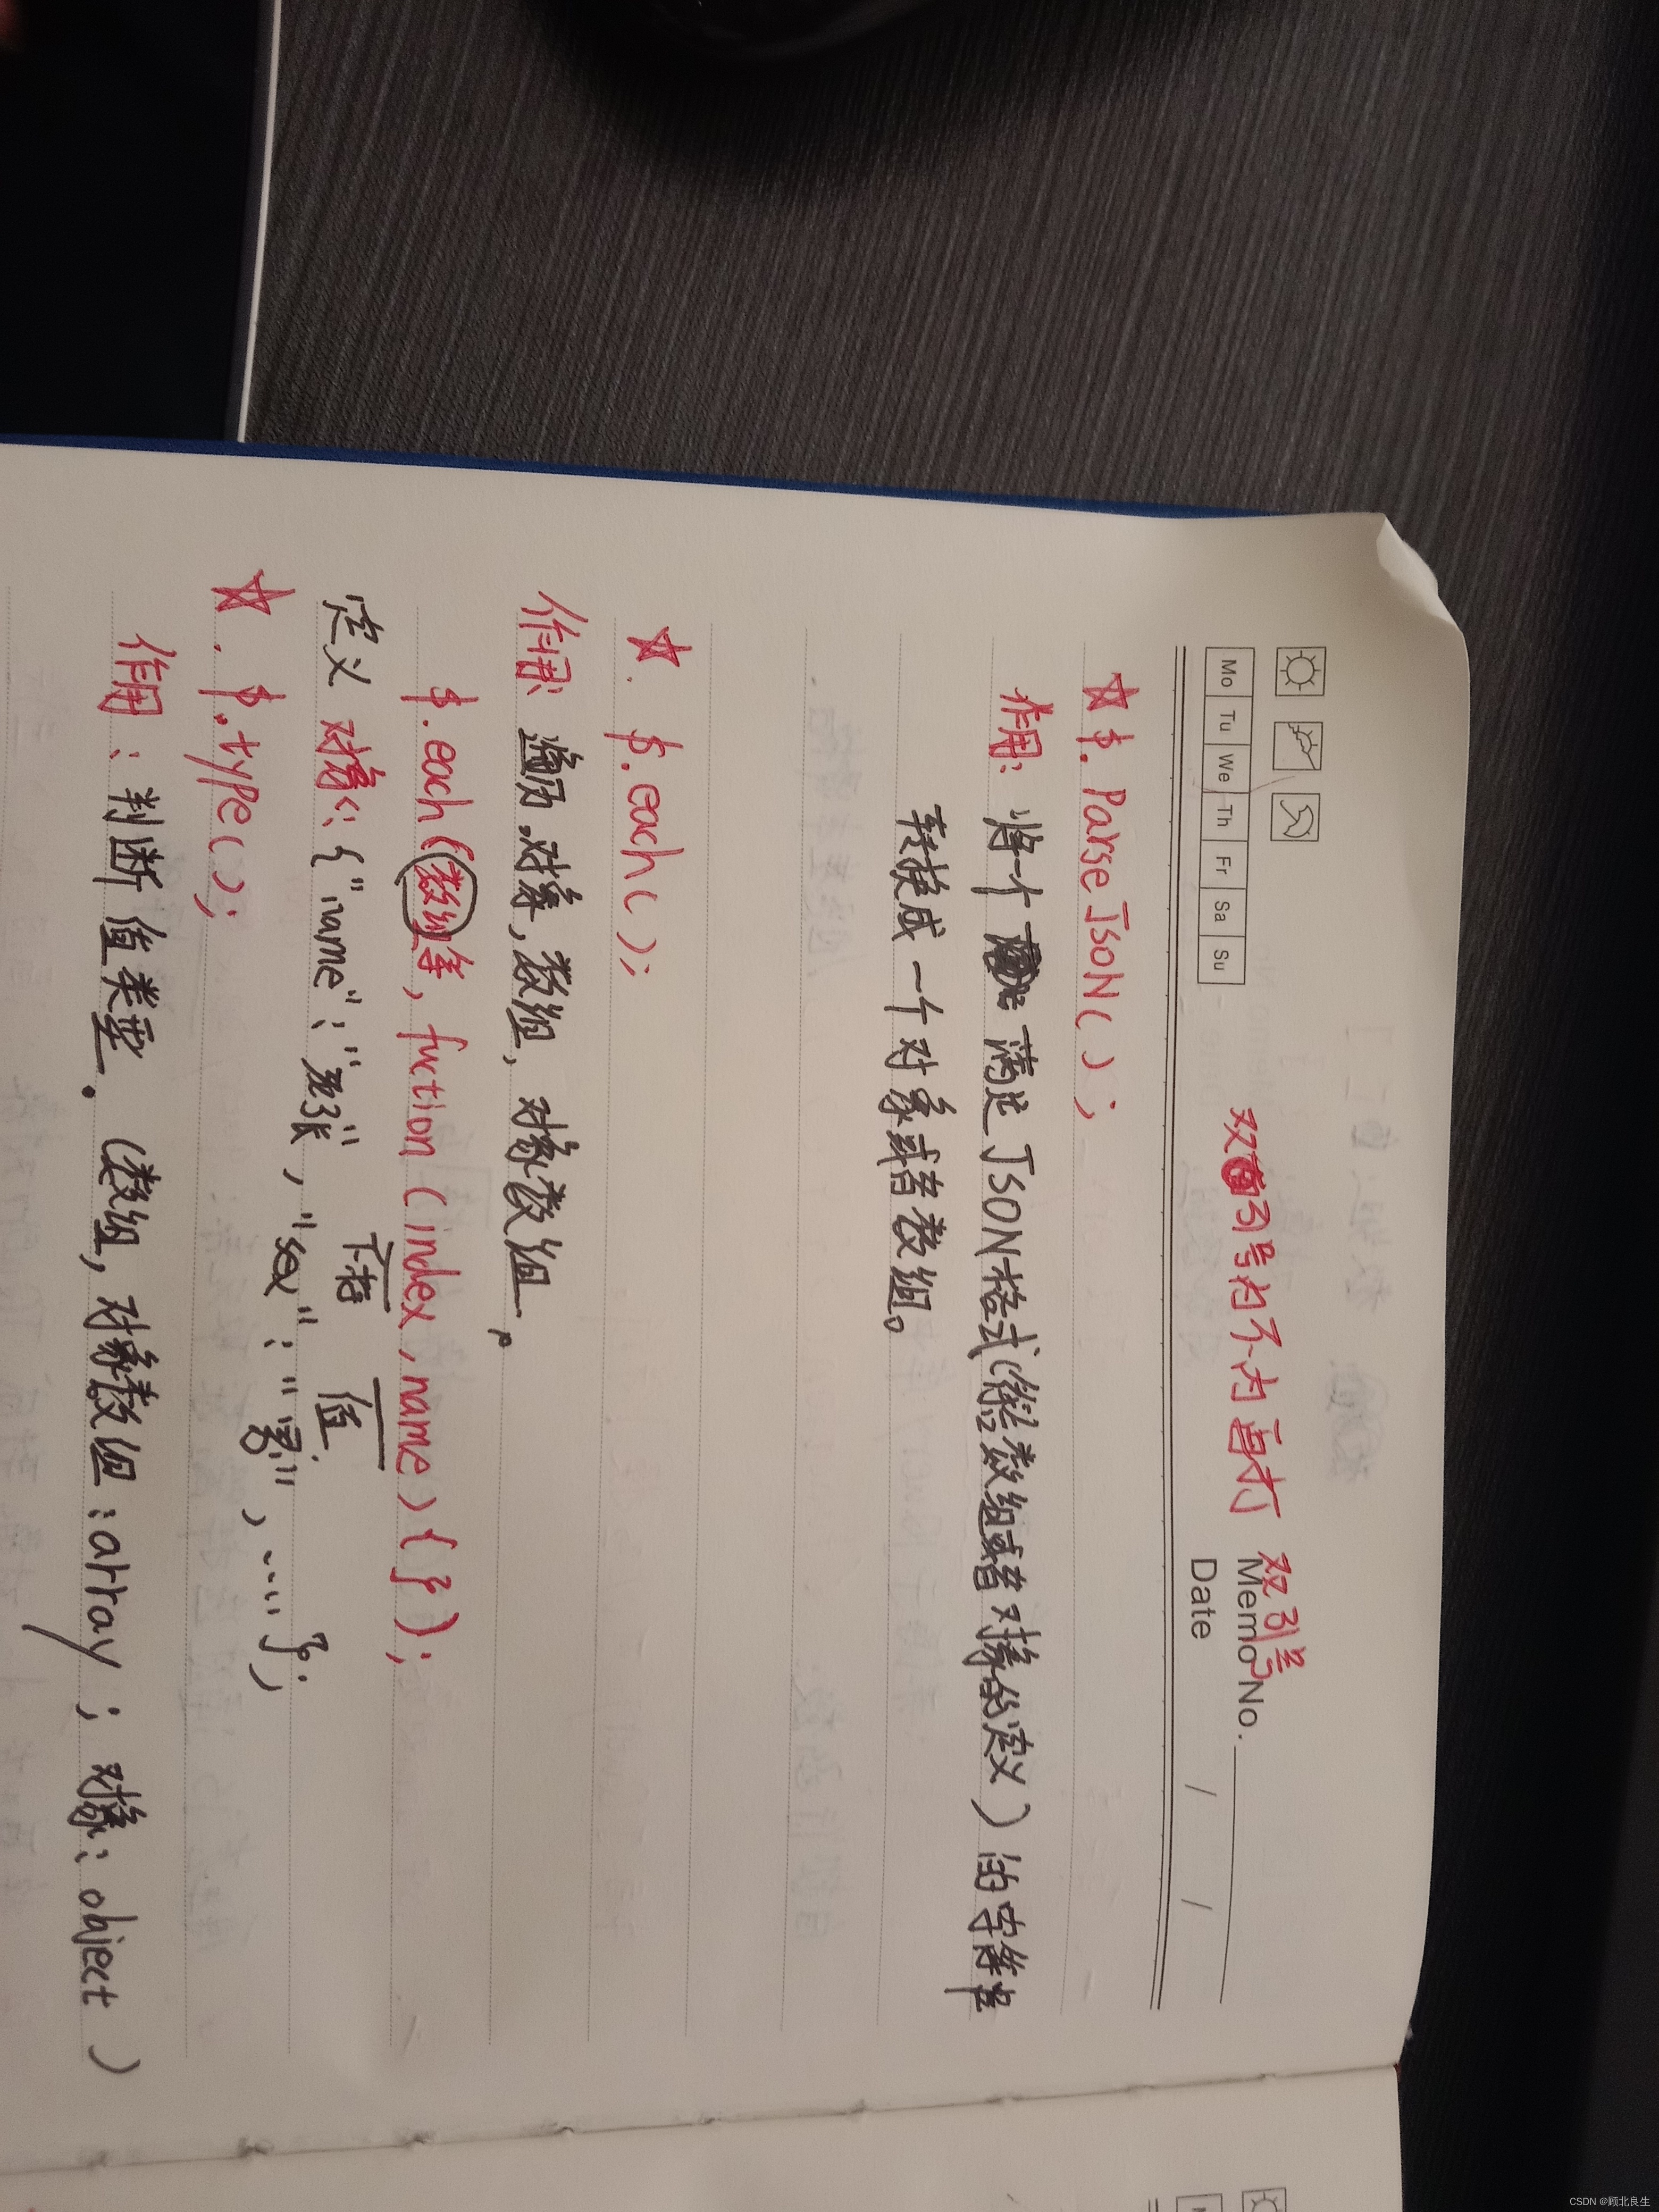 双引号内不内再打 双引号
Memo No.
Mo Tu We Th Fr Sa Su
Date / /
☆ $. ParseJSON( );
作用: 将一个 满足JSON格式(符合数组或者对象的定义)的字符串
转换成一个对象或者数组。
☆. $.each( );
作用: 遍历.对象,数组, 对象数组。
$.each(数组等, fuction (index, name) { } );
下标 值
定义 对象: {"name": "老张", "sex": "男", ....};
☆. $.type( );
作用: 判断值类型. (数组, 对象数组: array; 对象: object)
CSDN @顾北良生